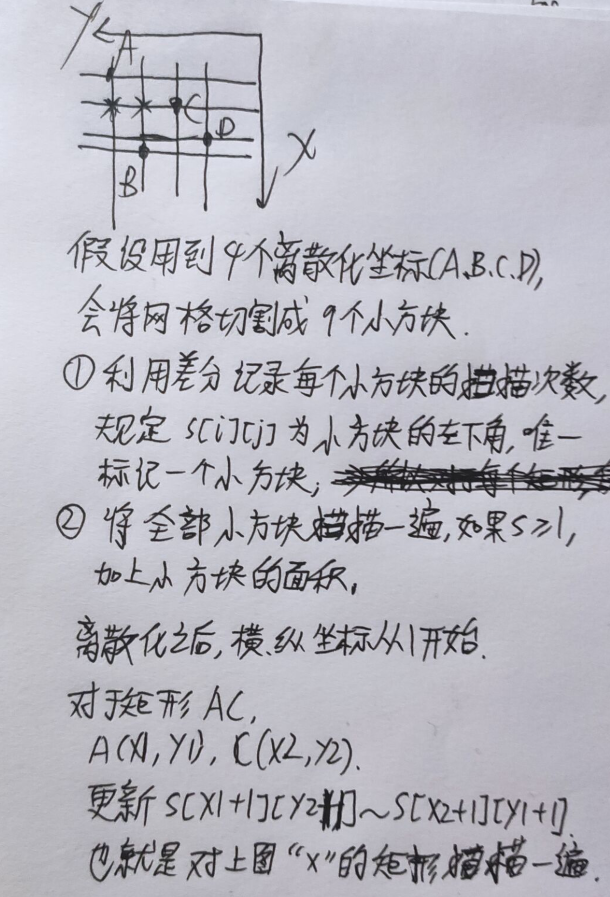 Y
A
C
D
X
B
假设用到4个离散化坐标(A、B、C、D),
会将网格切割成9个小方块.
①利用差分记录每个小方块的描次数,
规定S[i][j]为小方块的左下角,唯一
标记一个小方块;
②将全部小方块描一遍,如果S≥1,
加上小方块的面积。
离散化之后,横、纵坐标从1开始.
对于矩形AC,
A(X1,Y1),C(X2,Y2).
更新S[X1+1][Y2+1]~S[X2+1][Y1+1].
也就是对上图“X”的矩形描一遍.